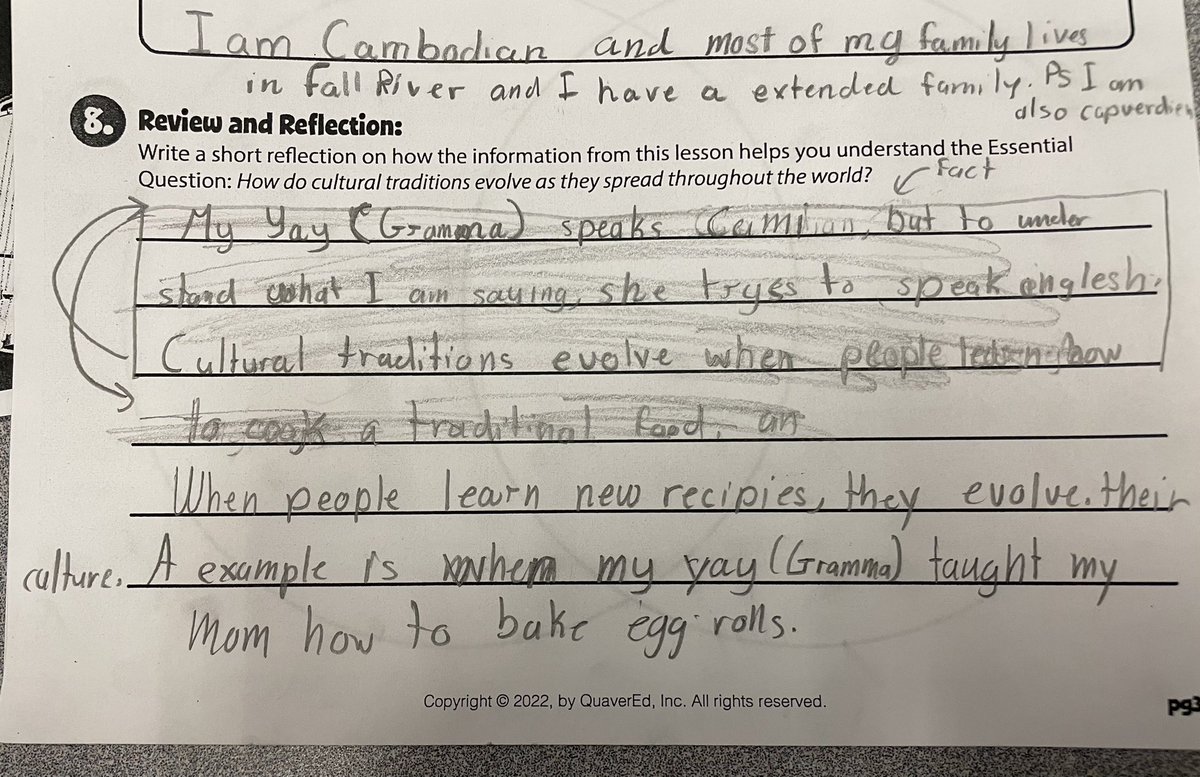 I am Cambodian and most of my family lives
in Fall River and I have a extended family. Ps I am
also capverdien
8. Review and Reflection:
Write a short reflection on how the information from this lesson helps you understand the Essential
Question: How do cultural traditions evolve as they spread throughout the world?
fact
My Yay (Gramma) speaks but to under
stand what I am saying, she tryes to speak englesh.
Cultural traditions evolve when people learn how
to cook a traditinal food, an
When people learn new recipies, they evolve. their
culture. A example is when my yay (Gramma) taught my
Mom how to bake egg rolls.
Copyright © 2022, by QuaverEd, Inc. All rights reserved.
pg3